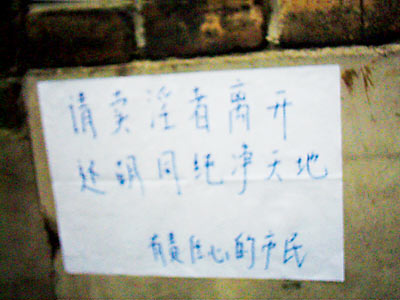 请卖淫者离开
还明月纯净天地
有责任心的市民